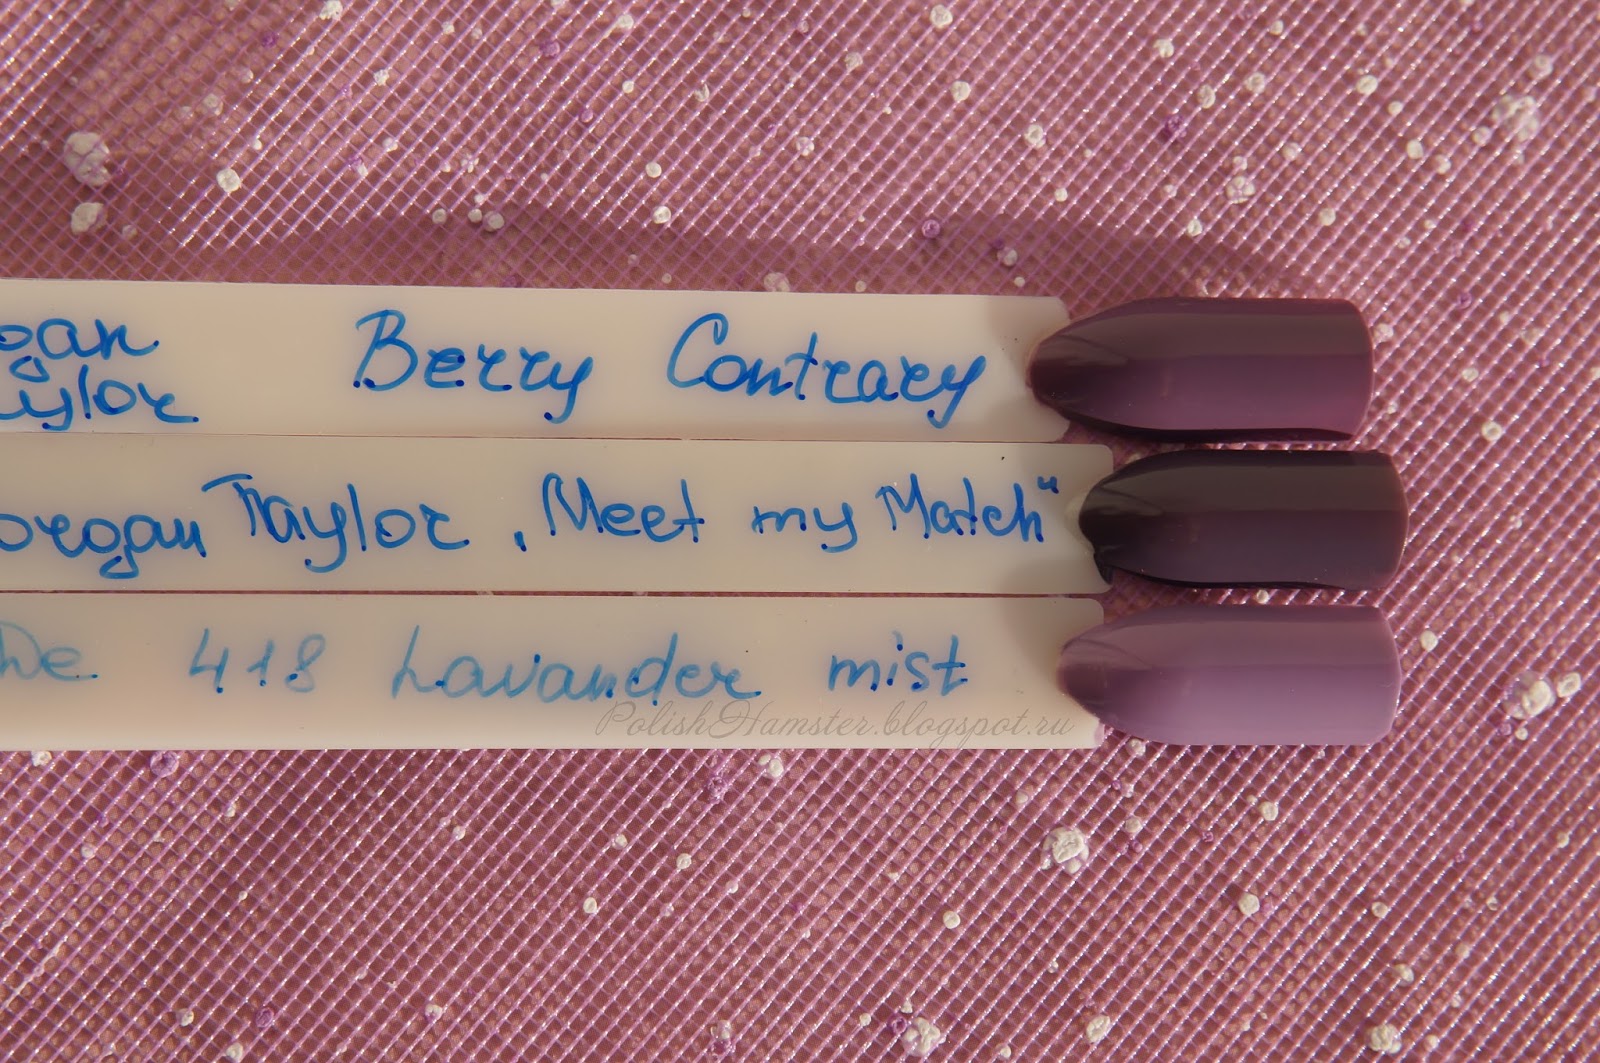 ogan
aylor Berry Contrary
organ Taylor „Meet my Match“
De 418 Lavander mist
PolishHamster.blogspot.ru